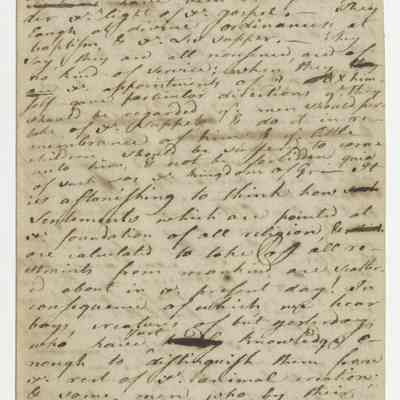 der ye. light of ye. gospel. They
laugh at divine ordinances, as
baptism & ye. Ld's supper. They
say they are all nonsense, and of
no kind of service; when they
ye. appointments of & him-
self gave particular directions yt. they
should be regarded yt. men should par-
take of ye. supper & to do it in re-
membrance of him & yt. little
children should be suffered to come
unto him, & not be forbidden for
of such is ye. kingdom of G— It
is astonishing to think how
sentements which are pointed at
ye. foundation of all religion, &
are calculated to take off all re-
straints from mankind are scatter-
d about in ye. present day! In
consequence of which we hear
boys, creatures of but yesterday,
who have just knowledge e-
nough to distinguish them from
ye. rest of ye. animal creation
& some men who by their